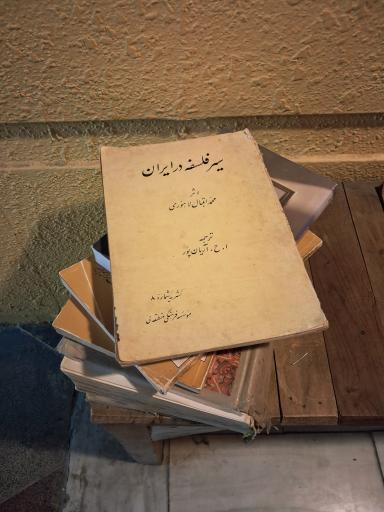 سیر فلسفه در ایران
اثر
محمد اقبال لاهوری
ترجمه
ا. ح. آریان پور
نشریه شماره
مؤسسه فرهنگی منطقه‌ئی